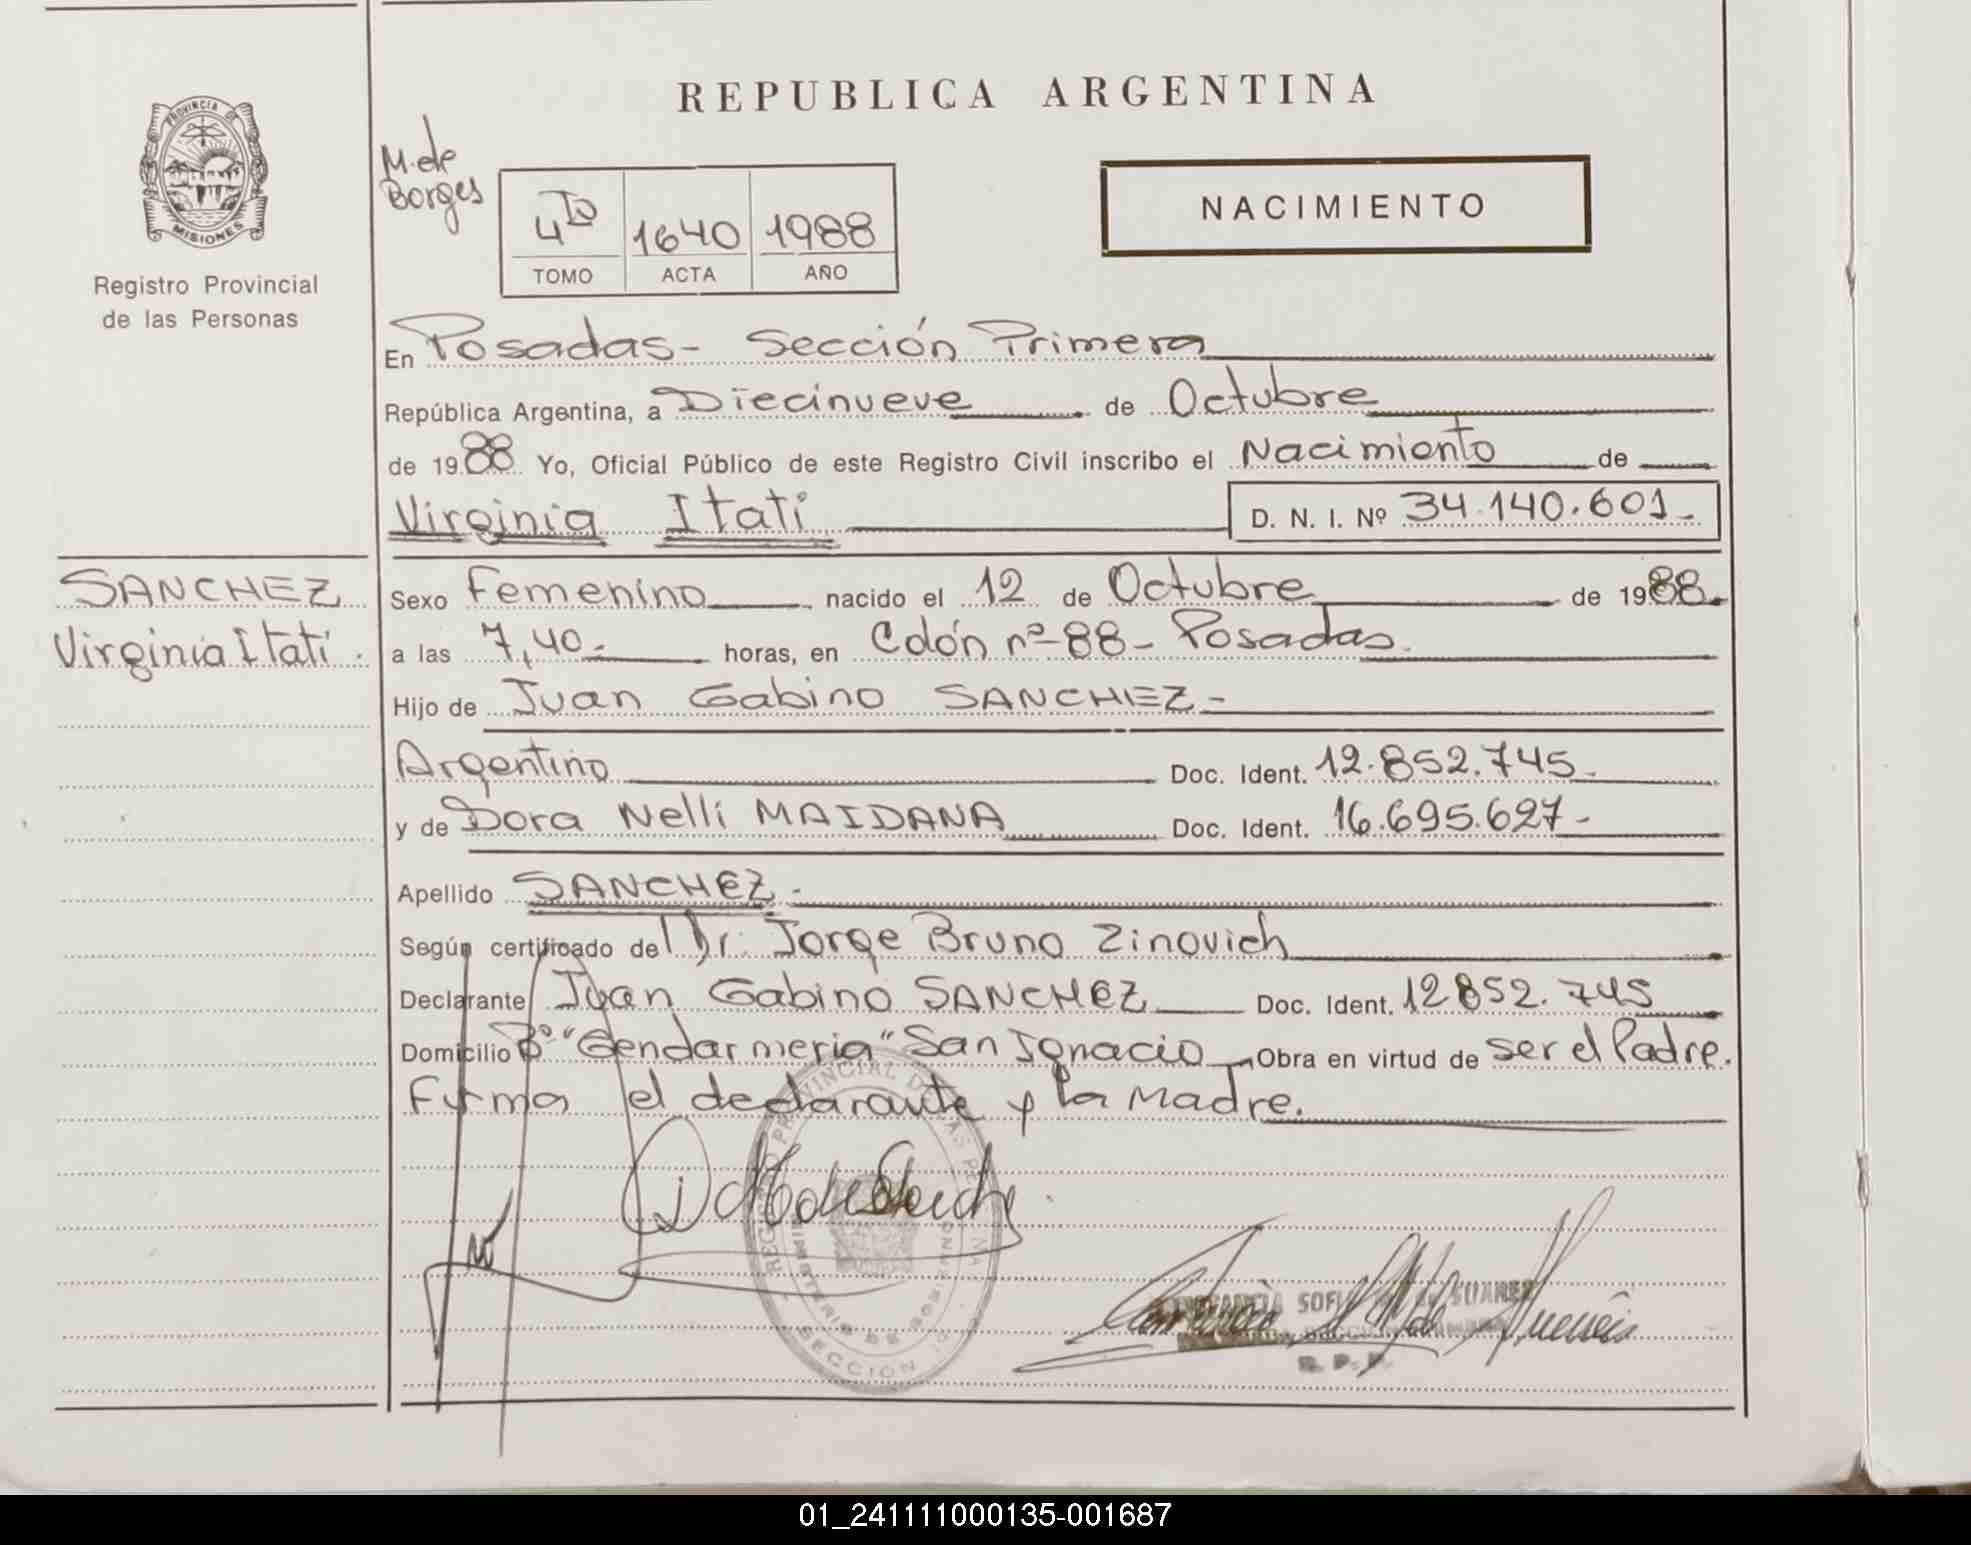 REPUBLICA ARGENTINA
PROVINCIA DE
MISIONES
Registro Provincial
de las Personas
M. de
Borges
4to 1640 1988
TOMO ACTA AÑO
NACIMIENTO
En Posadas - Sección Primera
República Argentina, a Diecinueve de Octubre
de 1988 Yo, Oficial Público de este Registro Civil inscribo el Nacimiento de
Virginia Itatí D. N. I. Nº 34.140.601-
SANCHEZ
Virginia Itatí.
Sexo Femenino nacido el 12 de Octubre de 1988.
a las 7,40.- horas, en Colón nº 88 - Posadas.
Hijo de Juan Gabino SANCHEZ-
Argentino Doc. Ident. 12.852.745.
y de Dora Nelli MAIDANA Doc. Ident. 16.695.627-
Apellido SANCHEZ.
Según certificado del Dr. Jorge Bruno Zinovich
Declarante Juan Gabino SANCHEZ Doc. Ident. 12852.745
Domicilio Bº "Gendarmeria" San Ignacio Obra en virtud de ser el Padre.
Firma el declarante y la Madre.
REGISTRO PROVINCIAL DE LAS PERSONAS
MINISTERIO DE GOBIERNO
SECCION 1a
SOFIA SUAREZ
R. P. P.
01_241111000135-001687